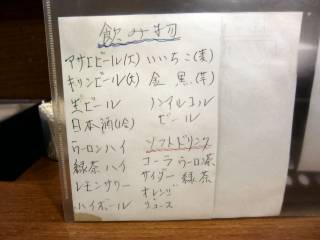 飲み物
アサヒビール(大)
キリンビール(大)
生ビール
日本酒(1合)
ウーロンハイ
緑茶ハイ
レモンサワー
ハイボール
いいちこ(麦)
金黒(芋)
ノンアルコール
ビール
ソフトドリンク
コーラ ウーロン茶
サイダー 緑茶
オレンジ
ジュース